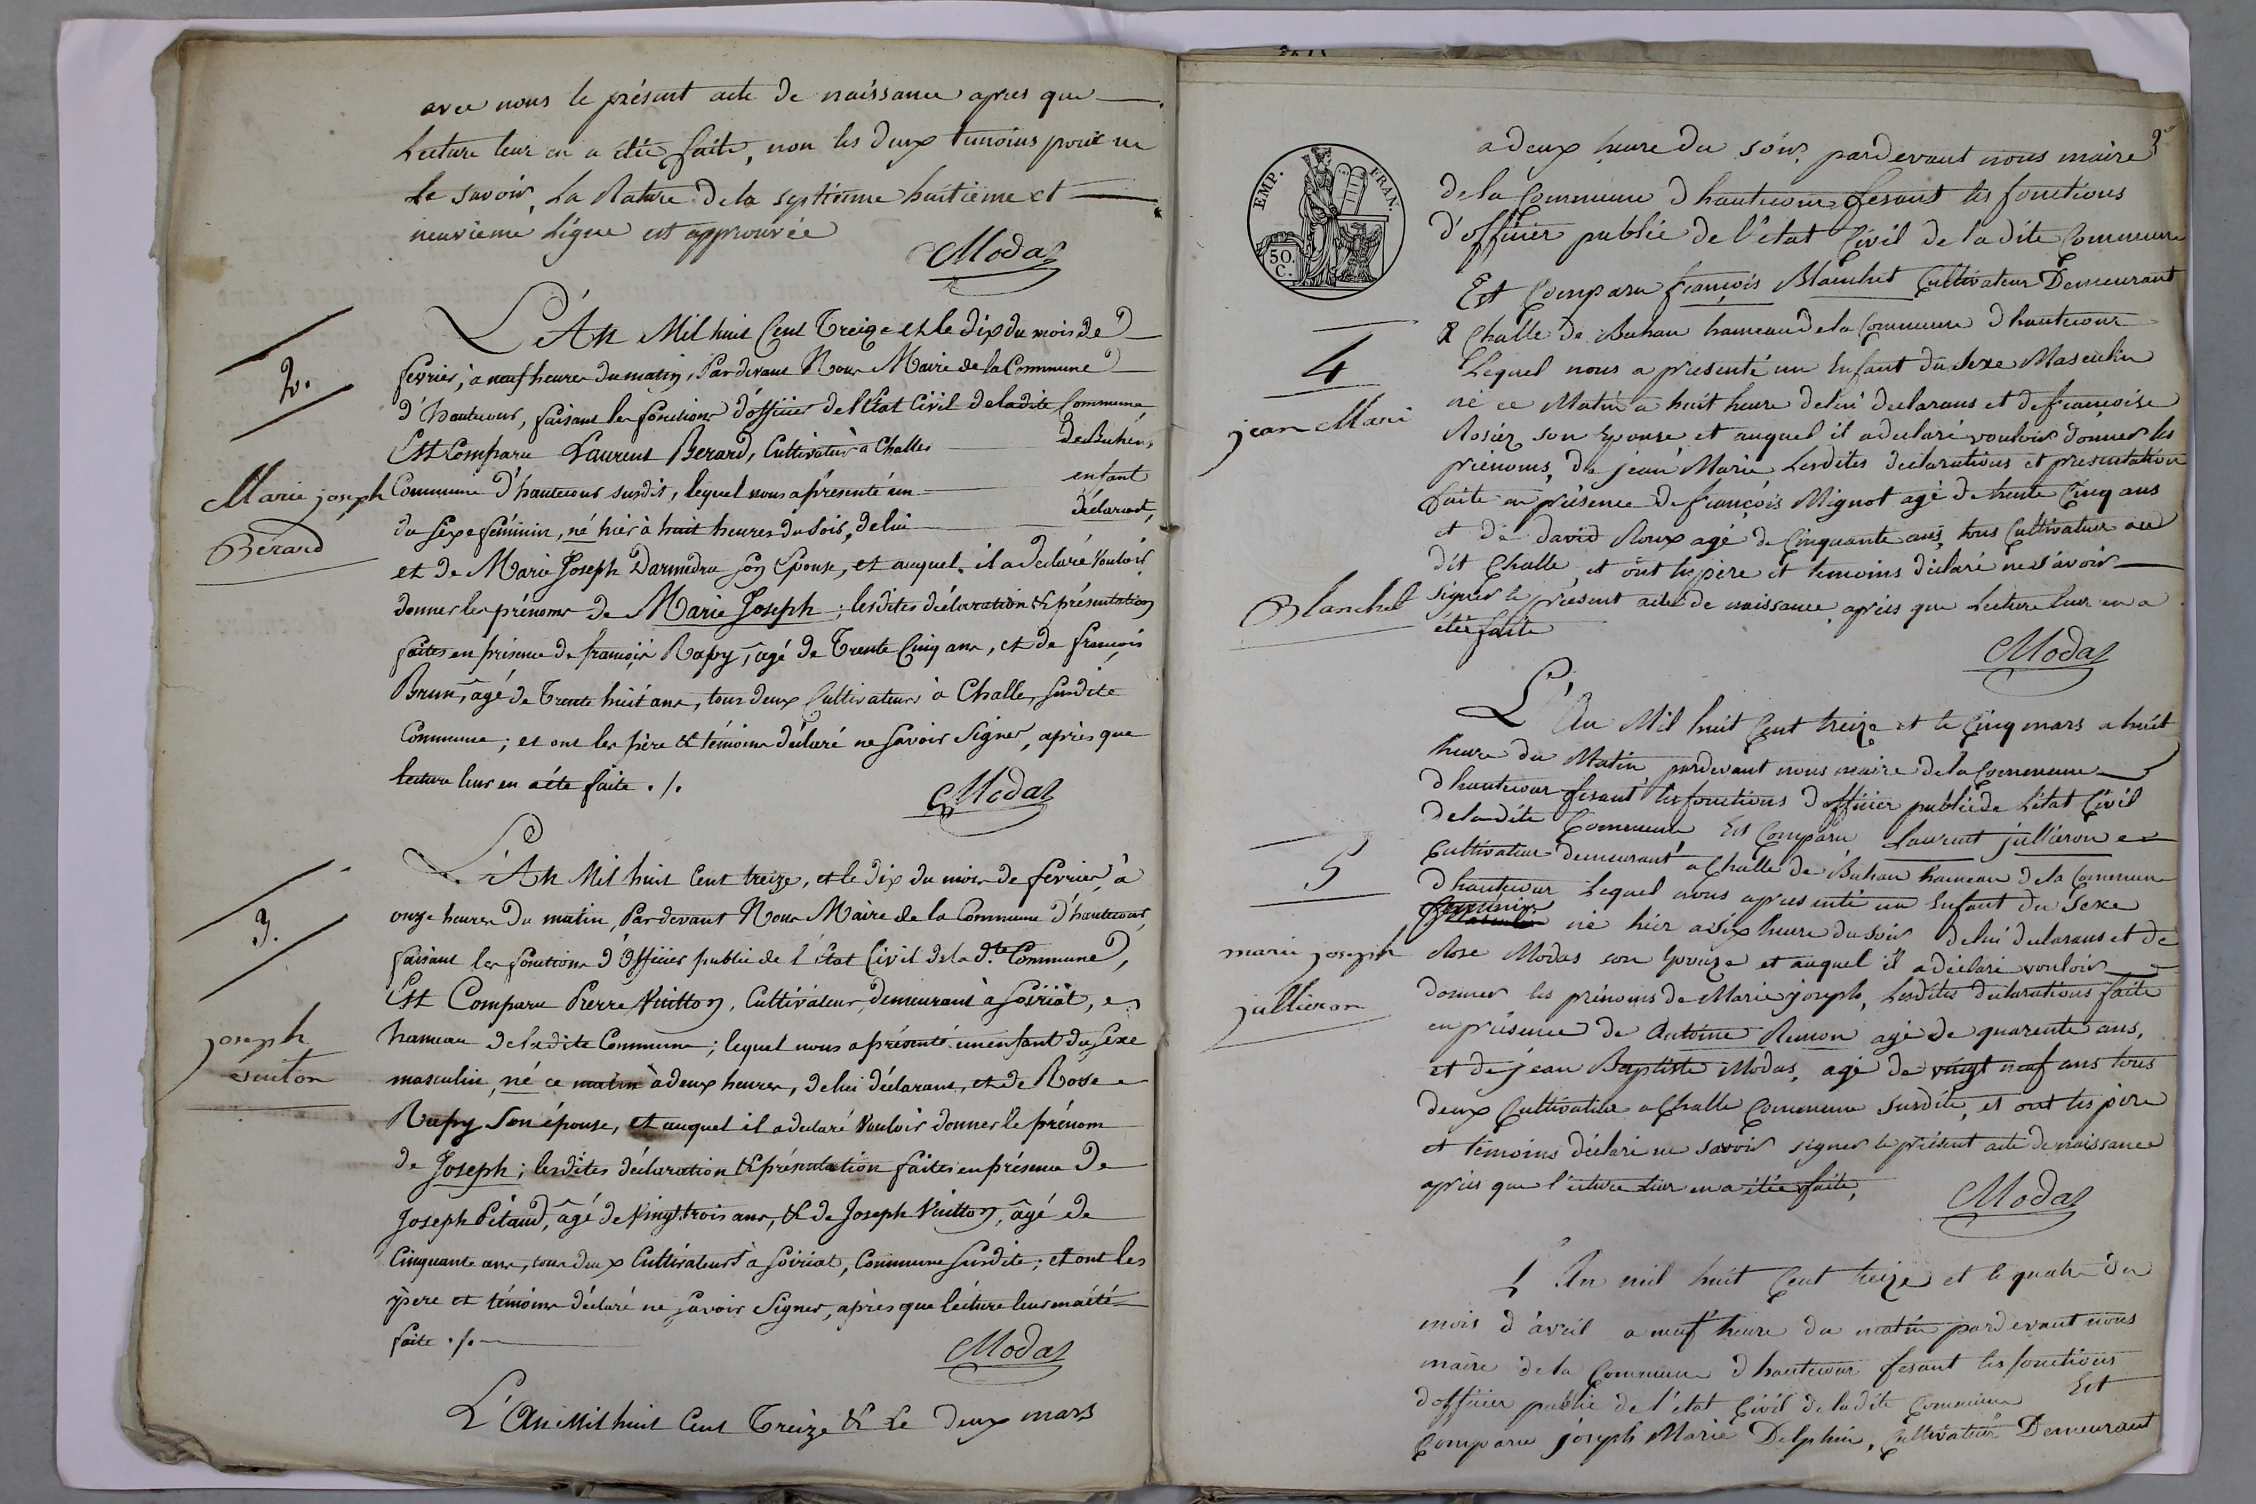 avec nous le présent acte de naissance apres que
Lecture leur en a étée faite, non les deux temoins pour ne
le savoir, La Rature de la septieme huitieme et
neuvieme Ligne est approuvée
Modas
2.
Marie joseph
Bérard
L'An Mil huit Cent Treize et le dix du mois de
fevrier, à neuf heures du matin, Pardevant Nous Maire de la Commune
d'hautecour, faisant les fonctions d'officier de l'Etat Civil de ladite Commune
Est Comparu Laurent Berard, Cultivateur à Challes de Buhens,
Commune d'hautecour susdit, lequel nous a présenté un enfant
du sexe féminin, né hier à huit heures du soir, de lui déclarant,
et de Marie Joseph Darmedru son Epouse, et auquel il a declaré vouloir
donner les prénoms de Marie Joseph; lesdites déclaration & présentation
faites en présence de francois Rapy, agé de Trente Cinq ans, et de francois
Brun, agé de Trente huit ans, tous deux Cultivateurs à Challe, susdite
Commune; et ont les père & témoins déclaré ne savoir Signer, après que
lecture leur en a été faite ./.
Modas
3.
joseph
vuiton
L'An Mil huit Cent treize, et le dix du mois de fevrier, à
onze heures du matin, Pardevant Nous Maire de la Commune d'hautecour,
faisant les fonctions d'Officier public de l'état Civil de la dte Commune,
Est Comparu Pierre Vuitton, Cultivateur, demeurant à Soiriat,
hameau de ladite Commune; lequel nous a présenté un enfant du sexe
masculin, né ce matin à deux heures, de lui déclarant, et de Rose
Rapy Son épouse, et auquel il a declaré Vouloir donner le prénom
de Joseph; lesdites déclaration & présentation faites en présence de
Joseph Pitaud, âgé de Vingt trois ans, & de Joseph Vuitton, âgé de
Cinquante ans, tous deux Cultivateurs à Soiriat, Commune susdite; et ont les
père et témoins déclaré ne savoir Signer, après que lecture leur en a été
faite ./.
Modas
L'An Mil huit Cent Treize & Le deux mars
EMP. FRAN.
50. C.
a deux heure du soir, pardevant nous maire
de la Commune d'hautecour fesant les fonctions
d'officier public de l'état Civil de la dite Commune
Est Comparu françois Blanchet Cultivateur Demeurant
a Challe de Buhan hameau de la Commune d hautecour
Lequel nous a présenté un Enfant du sexe Masculin
né ce Matin a huit heure de lui declarans et de francoise
Rosier son Epouse et auquel il a declaré vouloir donner les
prénoms, de jean Marie Lesdites declarations et presentation
faite en présence de françois Mignot agé de trente Cinq ans
et de david Roux agé de Cinquante ans, tous Cultivateur au
dit Challe, et ont le père et temoins déclaré ne savoir
signer le présent acte de naissance après que Lecture leur en a
étée faite
Modas
4
jean Marie
Blanchet
L'An Mil huit Cent treize et le Cinq mars a huit
heure du Matin pardevant nous maire de la Commune
d hautecour fesant les fonctions d officier public de L'état Civil
de la dite Commune Est Comparu Laurent jullieron
Cultivateur demeurant a Challe de Buhan hameau de la Commune
d hautecour Lequel nous a presenté un Enfant du Sexe
féminin né hier a six heure du soir de lui declarans et de
Rose Modas son Epouze et auquel il a déclaré vouloir
donner les prénoms de Marie joseph, Lesdites declarations faite
en présence de Antoine Remon agé de quarente ans,
et de jean Baptiste Modas, agé de vingt neuf ans tous
deux Cultivateur a Challe Commune susdite, et ont les père
et temoins déclaré ne savoir signer le présent acte de naissance
après que l'ecture leur en a étée faite,
Modas
5
marie joseph
jullieron
L An mil huit Cent treize et le quatre du
mois d'avril a neuf heure du matin pardevant nous
maire de la Commune d hautecour fesant les fonctions
d officier public de l'état Civil de la dite Commune Est
Comparu joseph Marie Delphin, Cultivateur Demeurant